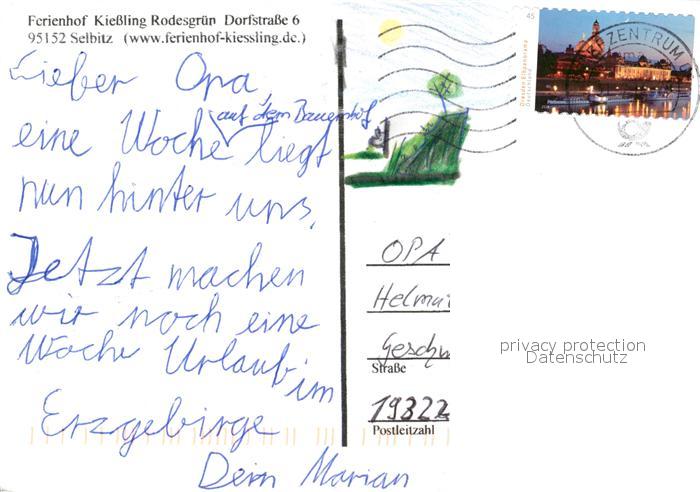 Ferienhof Kießling Rodesgrün Dorfstraße 6
95152 Selbitz (www.ferienhof-kiessling.de.)
Lieber Opa,
auf dem Bauernhof
eine Woche liegt
nun hinter uns.
Jetzt machen
wir noch eine
Woche Urlaub im
Erzgebirge
Dein Marian
45
Dresden Elbpanorama
Deutschland
ZENTRUM
OPA
Helmu
Geschw
Straße
19322
Postleitzahl
privacy protection
Datenschutz